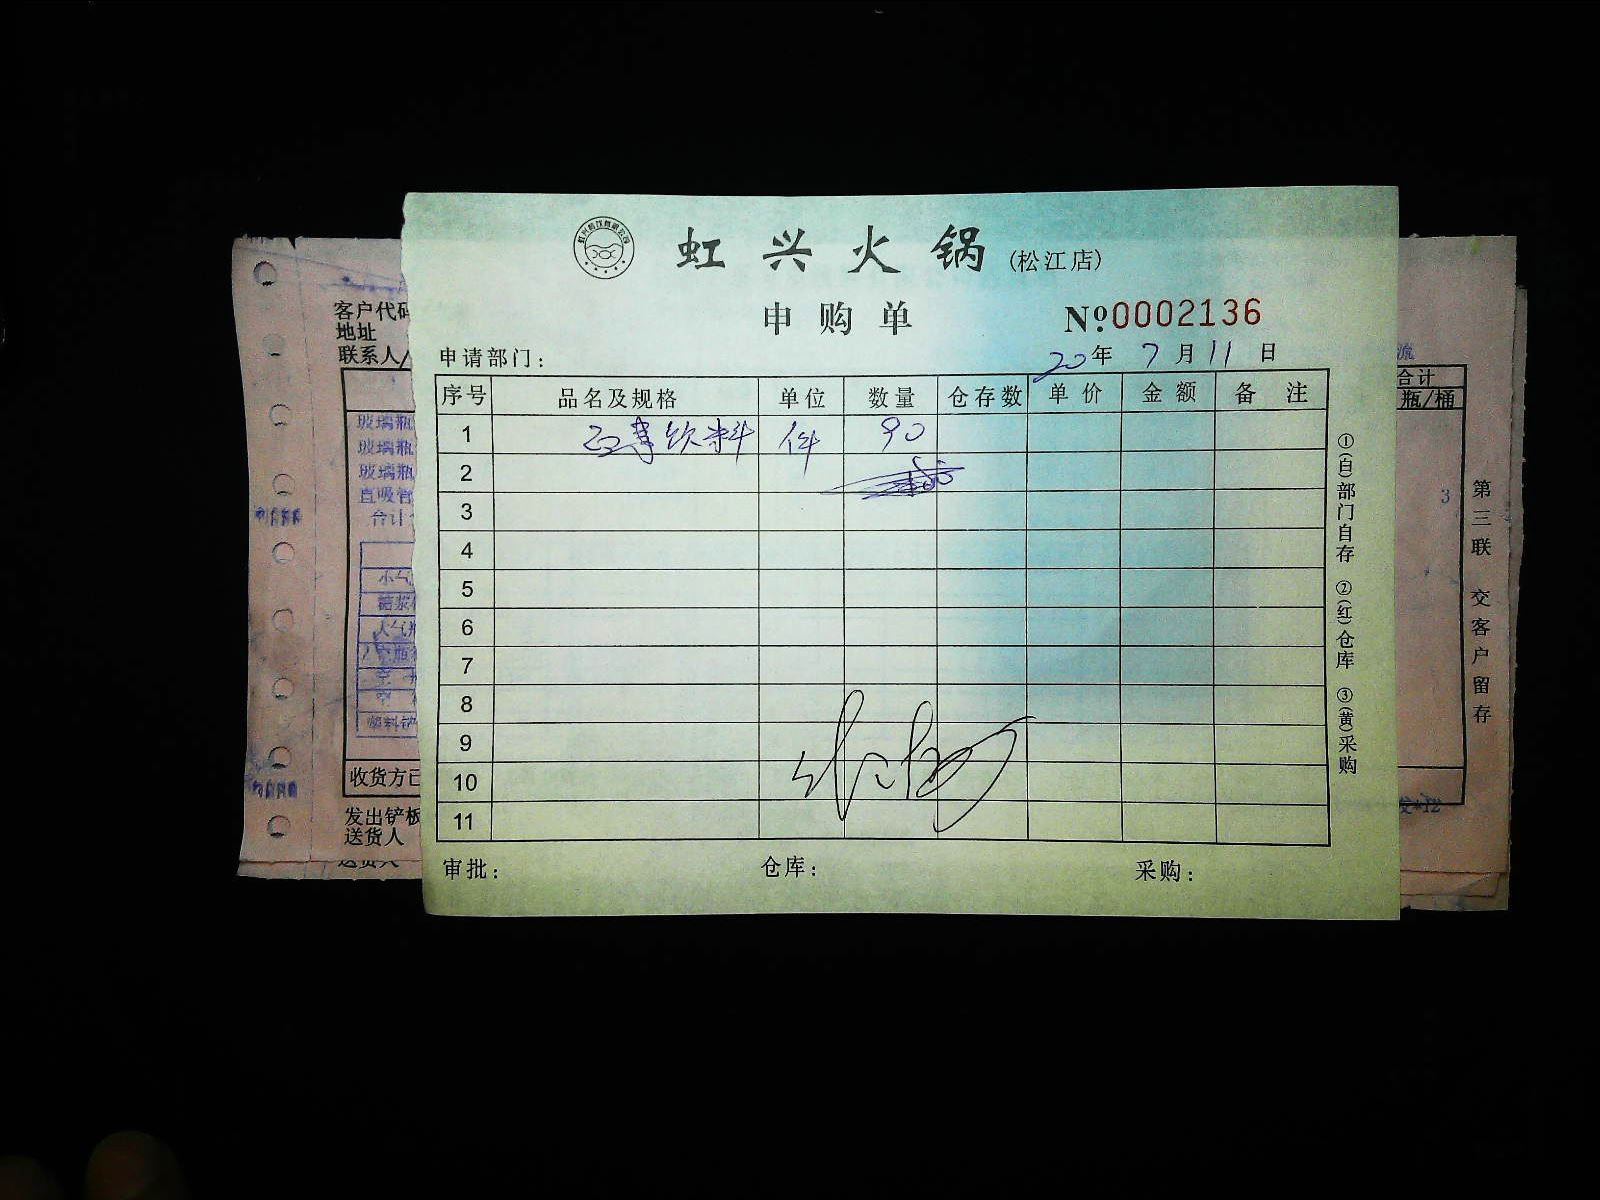 虹兴火锅(松江店)
申购单
№0002136
申请部门:
20年7月11日
序号 品名及规格 单位 数量 仓存数 单价 金额 备注
1 饮料 件 90
2
3
4
5
6
7
8
9
10
11
审批: 仓库: 采购:
①(白)部门自存 ②(红)仓库 ③(黄)采购
客户代码
地址
联系人/
玻璃瓶
玻璃瓶
玻璃瓶
直吸管
合计
小气
糖浆
大气瓶
收货方已
发出铲板
送货人
送货人
流
合计
瓶/桶
3
第三联 交客户留存
发*12